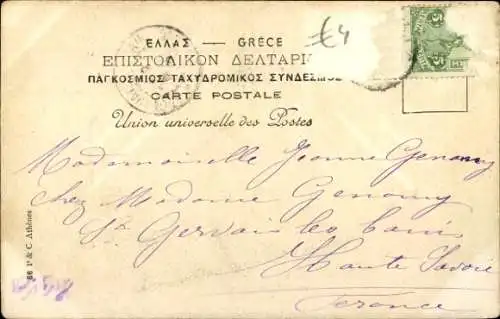 ΕΛΛΑΣ — GRÈCE
ΕΠΙΣΤΟΛΙΚΟΝ ΔΕΛΤΑΡΙ
ΠΑΓΚΟΣΜΙΟΣ ΤΑΧΥΔΡΟΜΙΚΟΣ ΣΥΝΔΕΣΜΟΣ
CARTE POSTALE
Union universelle des Postes
€4
5 5
Mademoiselle Jeanne Genomy
chez Madame Genomy
St Gervais les bains
Haute Savoie
France
86 P & C Athènes